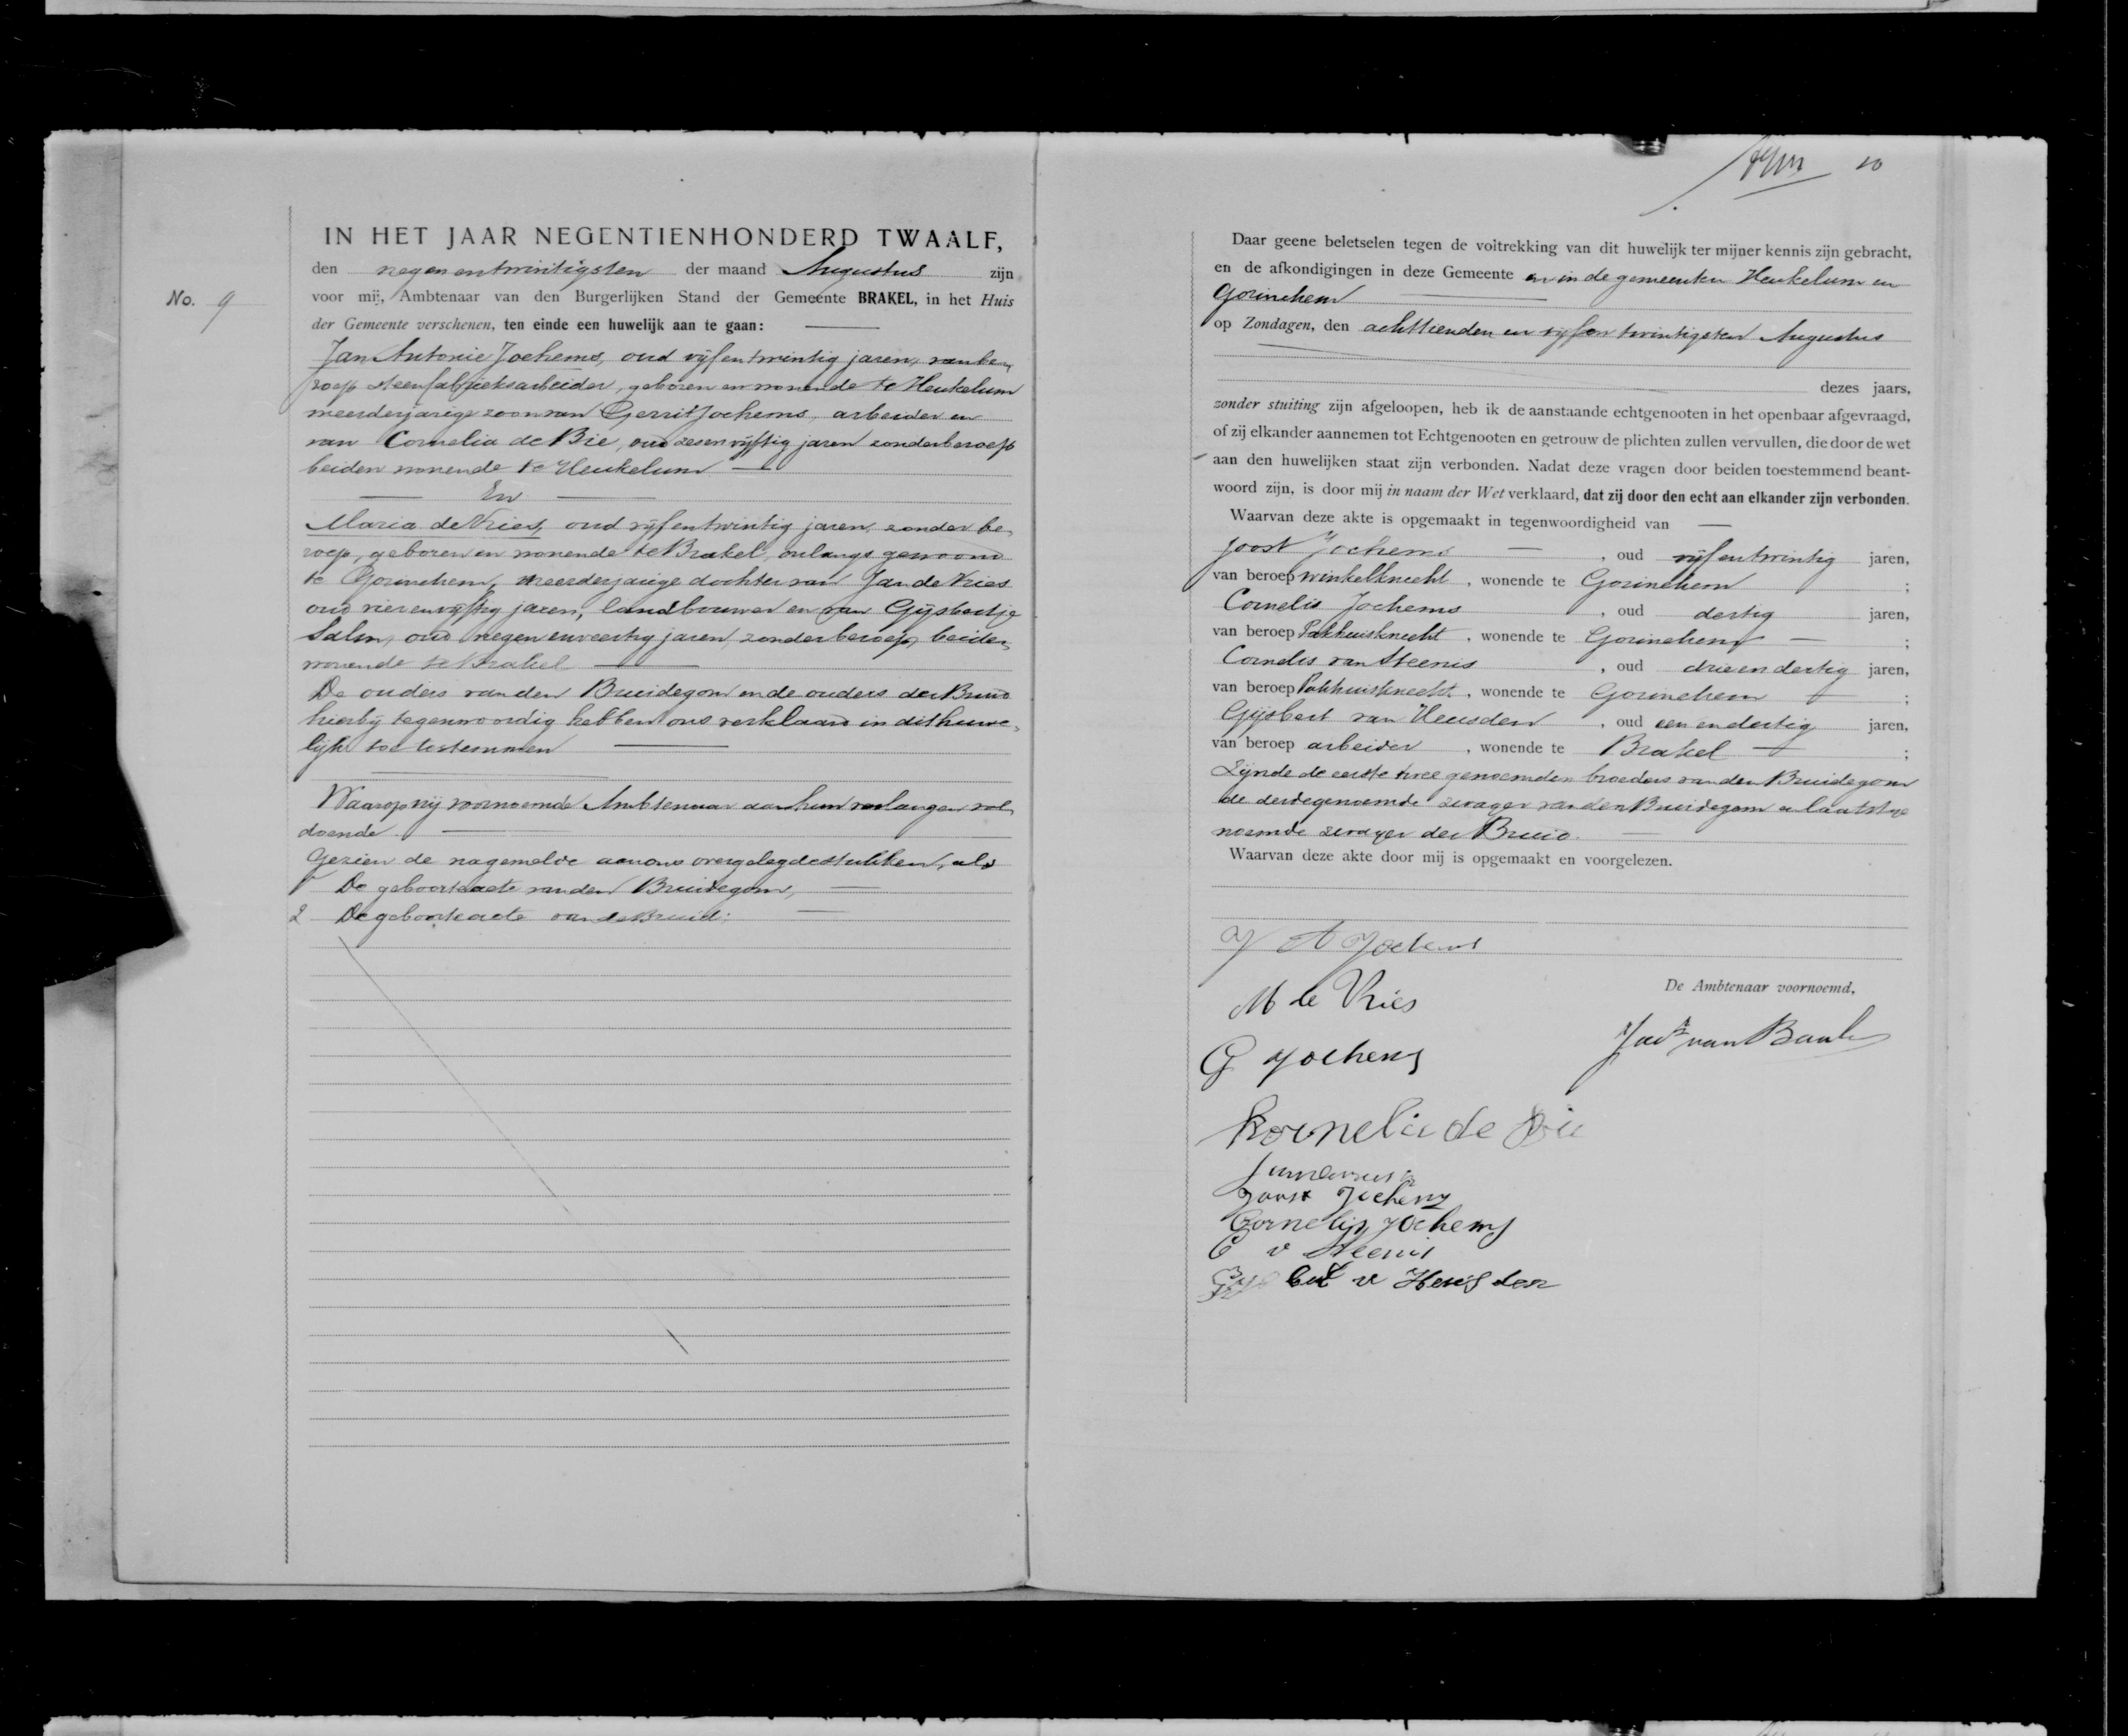 No. 9
IN HET JAAR NEGENTIENHONDERD TWAALF,
den negenentwintigsten der maand Augustus zijn
voor mij, Ambtenaar van den Burgerlijken Stand der Gemeente BRAKEL, in het Huis
der Gemeente verschenen, ten einde een huwelijk aan te gaan:
Jan Antonie Jochems, oud vijfentwintig jaren, van be-
roep steenfabrieksarbeider, geboren en wonende te Heukelum
meerderjarige zoon van Gerrit Jochems, arbeider en
van Cornelia de Bie, oud zesenvijftig jaren zonder beroep
beiden wonende te Heukelum
En
Maria de Vries, oud vijfentwintig jaren, zonder be-
roep, geboren en wonende te Brakel, onlangs gewoond
te Gorinchem, meerderjarige dochter van Jan de Vries
oud vierenvijftig jaren, landbouwer en van Gijsbertje
Salm, oud negenenveertig jaren, zonder beroep, beiden
wonende te Brakel
De ouders van den Bruidegom en de ouders der Bruid
hierbij tegenwoordig hebben ons verklaard in dit huwe-
lijk toe te stemmen
Waarop wij voornoemde Ambtenaar aan hun verlangen vol-
doende
Gezien de nagemelde aan ons overgelegde stukken, als
1 De geboorteacte van den Bruidegom,
2 De geboorteacte van de Bruid;
10
Daar geene beletselen tegen de voltrekking van dit huwelijk ter mijner kennis zijn gebracht,
en de afkondigingen in deze Gemeente en in de gemeenten Heukelum en
Gorinchem
op Zondagen, den achttienden en vijfentwintigsten Augustus
dezes jaars,
zonder stuiting zijn afgeloopen, heb ik de aanstaande echtgenooten in het openbaar afgevraagd,
of zij elkander aannemen tot Echtgenooten en getrouw de plichten zullen vervullen, die door de wet
aan den huwelijken staat zijn verbonden. Nadat deze vragen door beiden toestemmend beant-
woord zijn, is door mij in naam der Wet verklaard, dat zij door den echt aan elkander zijn verbonden.
Waarvan deze akte is opgemaakt in tegenwoordigheid van
Joost Jochems , oud vijfentwintig jaren,
van beroep winkelknecht , wonende te Gorinchem ;
Cornelis Jochems , oud dertig jaren,
van beroep Pakhuisknecht , wonende te Gorinchem ;
Cornelis van Steenis , oud drieendertig jaren,
van beroep Pakhuisknecht , wonende te Gorinchem ;
Gijsbert van Heusden , oud eenendertig jaren,
van beroep arbeider , wonende te Brakel ;
Zijnde de eerste twee genoemden broeders van den Bruidegom
de derdegenoemde zwager van den Bruidegom en laatstge
noemde zwager der Bruid.
Waarvan deze akte door mij is opgemaakt en voorgelezen.
J A Jochems
M de Vries
De Ambtenaar voornoemd,
van Baal
G Jochems
Kornelia de Bie
Joost Jochems
Cornelis Jochems
C v Steenis
Gijsbert v Heusden